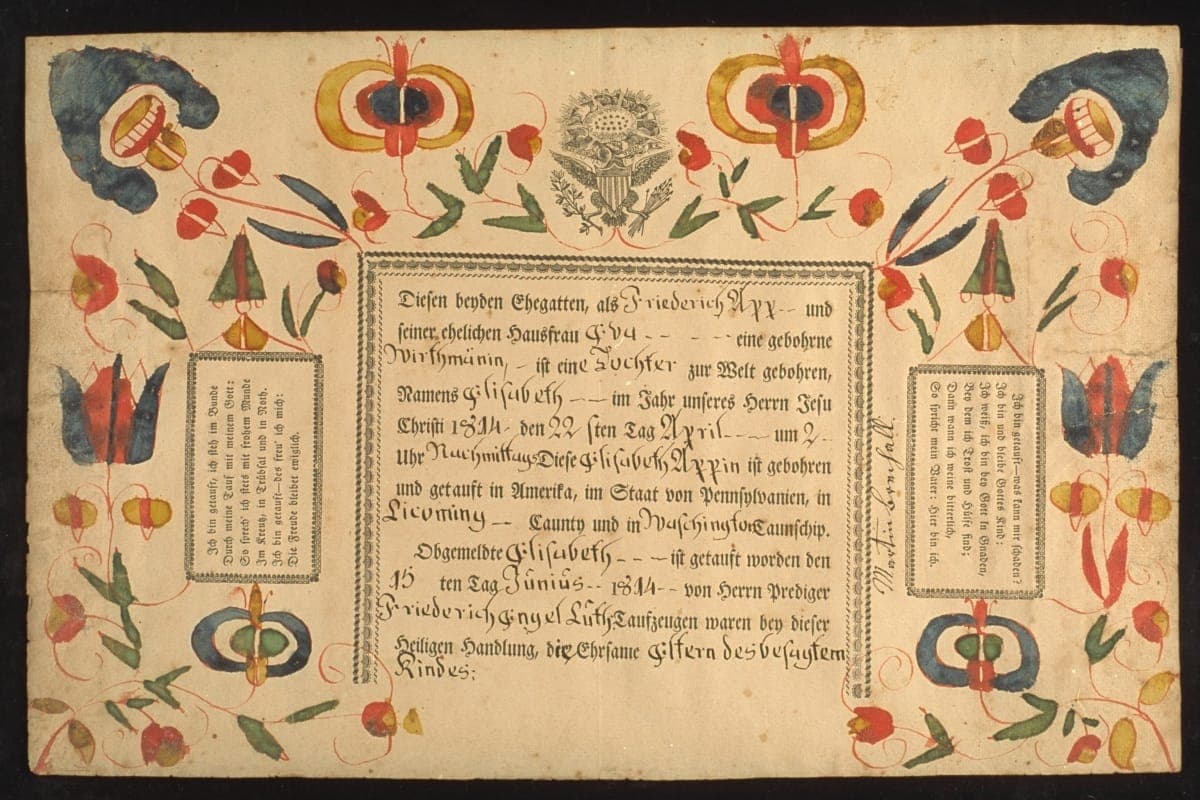 Diesen beyden Ehegatten, als Friederich App -- und
seiner ehelichen Hausfrau Eva - - - - - eine gebohrne
Wirthmänin, - ist eine Tochter zur Welt gebohren,
Namens Elisabeth - - - im Jahr unseres Herrn Jesu
Christi 1814 - den 22 sten Tag April - - - um 2 -
Uhr Nachmittags Diese Elisabeth Appin ist gebohren
und getauft in Amerika, im Staat von Pennsylvanien, in
Licoming -- Caunty und in Waschington Taunschip.
Obgemeldte Elisabeth - - - ist getauft worden den
15 ten Tag Junius - - 1814 - - von Herrn Prediger
Friederich Engel Luth Taufzeugen waren bey dieser
Heiligen Handlung, die Ehrsame Eltern des besagtem
Kindes:
Ich bin getauft, ich steh im Bunde
Durch meine Tauf mit meinem Gott:
So sprech' ich stets mit frohem Munde
Im Kreutz, in Trübsal und in Noth.
Ich bin getauft—des freu' ich mich:
Die Freude bleibet ewiglich.
Martin
Ich bin getauft—was kann mir schaden?
Ich bin und bleibe Gottes Kind:
Ich weiß, ich bin bey Gott in Gnaden,
Bey dem ich Trost und Hülfe find;
Darin wann ich weine bitterlich,
So spricht mein Vater: Hier bin ich.